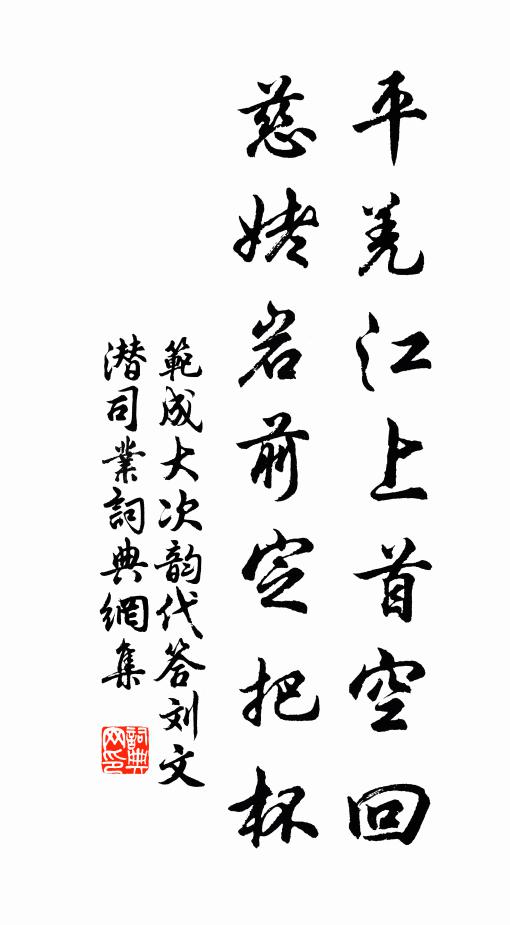 平羌江上首空回
慈姥岩前定把杯
範成大次韵代答刘文
潜司業詞典網集
詞典网印